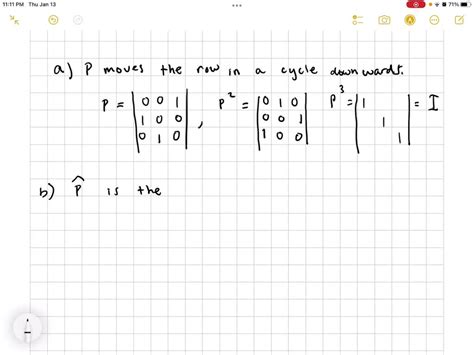 11:11 PM Thu Jan 13
71%
a) P moves the row in a cycle downwards.
P = | 0 0 1 | , P² = | 0 1 0 | P³ = | 1 | = I
| 1 0 0 | | 0 0 1 | | 1 |
| 0 1 0 | | 1 0 0 | | 1 |
b) P̂ is the